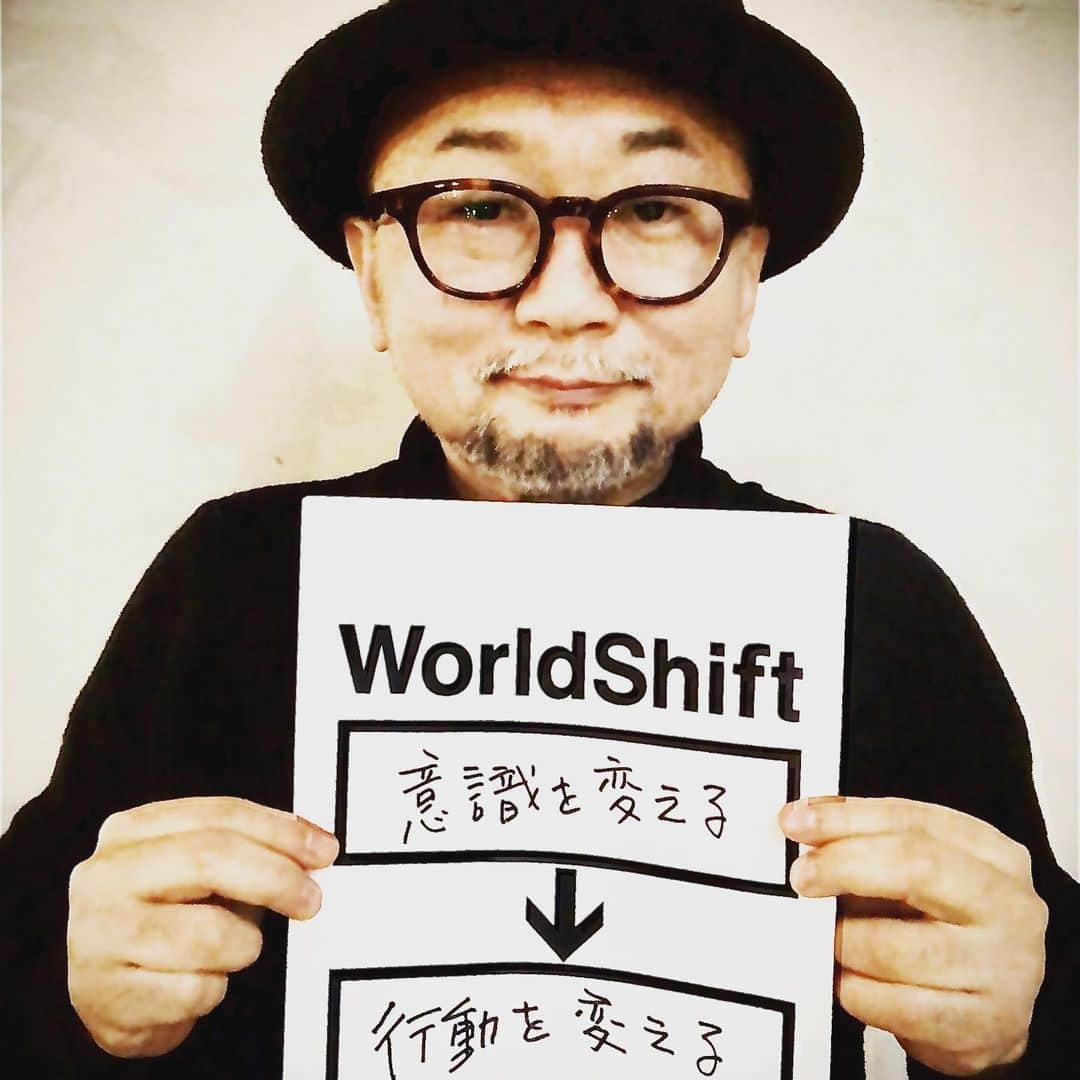 WorldShift
意識を変える
行動を変える